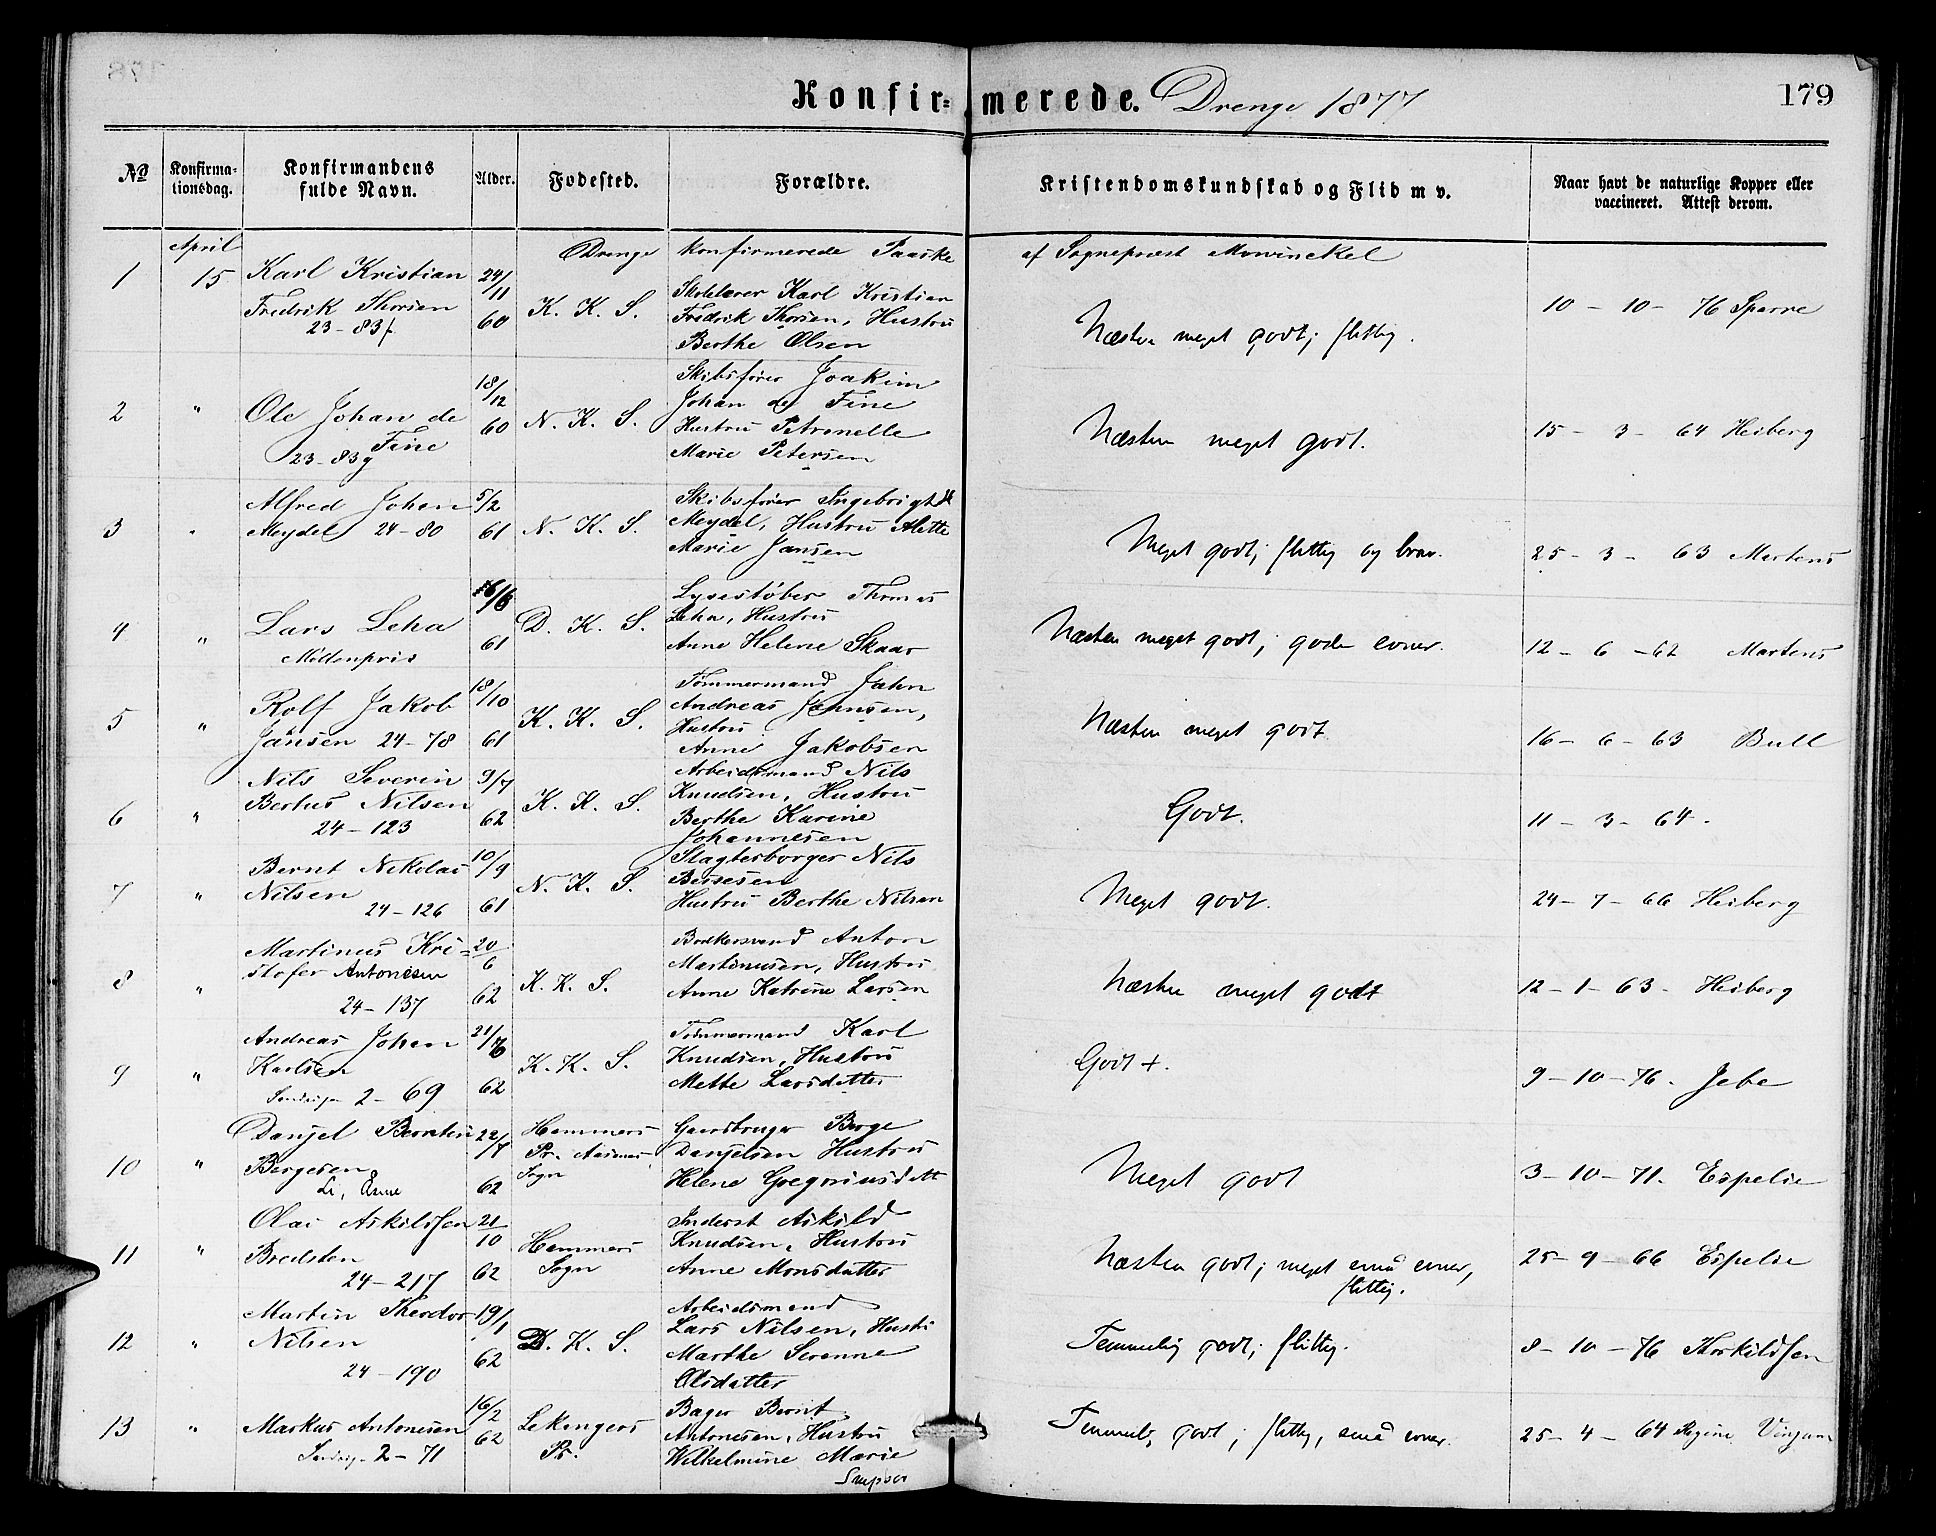 Konfir=merede. Drenge 1877
179
No
Konfirma-
tionsdag.
Konfirmandens
fulde Navn.
Alder.
Fodested.
Forældre.
Kristendomskundskab og Flid m v.
Naar havt de naturlige Kopper eller
vaccineret. Attest derom.
Drenge konfirmerede Paaske af Sognepræst Mowinckel
1
April
15
Karl Kristian
Fredrik Thorsen
23-83f
24/11
60
K. K. S.
Skolelærer Karl Kristian
Fredrik Thorsen, Hustru
Berthe Olsen
Næsten meget godt; flittig.
10 - 10 - 76 Sparre
2
"
Ole Johan de
Fine
23-83g
18/12
60
N. K. S.
Skibsfører Joakim
Johan de Fine
Hustru Petronelle
Marie Petersen
Næsten meget godt.
15 - 3 - 64 Heiberg
3
"
Alfred Johan
Meydel 24-80
5/2
61
N. K. S.
Skibsfører Ingebrigt
Meydel, Hustru Alette
Marie Jansen
Meget godt; flittig og brav.
25 - 3 - 63 Martens
4
"
Lars Leha
Möllenpris
61
D. K. S.
Lysestøber Thomas
Leha, Hustru
Anne Helene Skaar
Næsten meget godt; gode evner.
12 - 6 - 62 Martens
5
"
Rolf Jakob
Jansen 24-78
18/10
61
K. K. S.
Tømmermand Jahn
Andreas Jansen,
Hustru
Anne Jakobsen
Næsten meget godt
16 - 6 - 63 Bull
6
"
Nils Severin
Bertus Nilsen
24-123
9/7
62
K. K. S.
Arbeidsmand Nils
Knudsen, Hustru
Berthe Karine
Johannesen
Godt.
11 - 3 - 64.
7
"
Bernt Nikolai
Nilsen
24-126
10/9
61
N. K. S.
Slagterborger Nils
Hustru Berthe Nilsen
Meget godt.
24 - 7 - 66 Heiberg
8
"
Martinus Kri=
stofer Antonisen
24-137
20/6
62
K. K. S.
Bødkersvend Anton
Martinusen, Hustru
Anne Katrine Larsen
Næsten meget godt
12 - 1 - 63 - Heiberg
9
"
Andreas Johan
Karlsen
2-69
62
K. K. S.
Tømmermand Karl
Knudsen, Hustru
Mette Larsdatter
Godt +.
9 - 10 - 76. Jebe
10
"
Danjel Berntin
Bergesen
Li, Åsene
22/7
62
Hammers
Pr. Aasene
Sogn
Gaardbruger Berge
Danjelsen Hustru
Helene Gregoriusdatt
Meget godt
3 - 10 - 71. Espelie
11
"
Olai Askildsen
Bredsten
24-217
21/10
62
Hammers
Sogn
Inderst Askild
Knudsen, Hustru
Anne Monsdatter
Næsten godt; meget små evner,
flittig.
25 - 9 - 66 Espelie
12
"
Martin Theodor
Nilsen
24-190
19/1
62
D. K. S.
Arbeidsmand
Lars Nilsen, Hustru
Marthe Serenne
Olsdatter
Temmelig godt; flittig.
8 - 10 - 76 Thorkildsen
13
"
Markus Antonesen
2-71
16/2
62
Lekangers
Pr.
Bager Bernt
Antonesen, Hustru
Wilhelmine Marie
Temmelig godt; flittig, små evner.
25 - 4 - 64 Regine